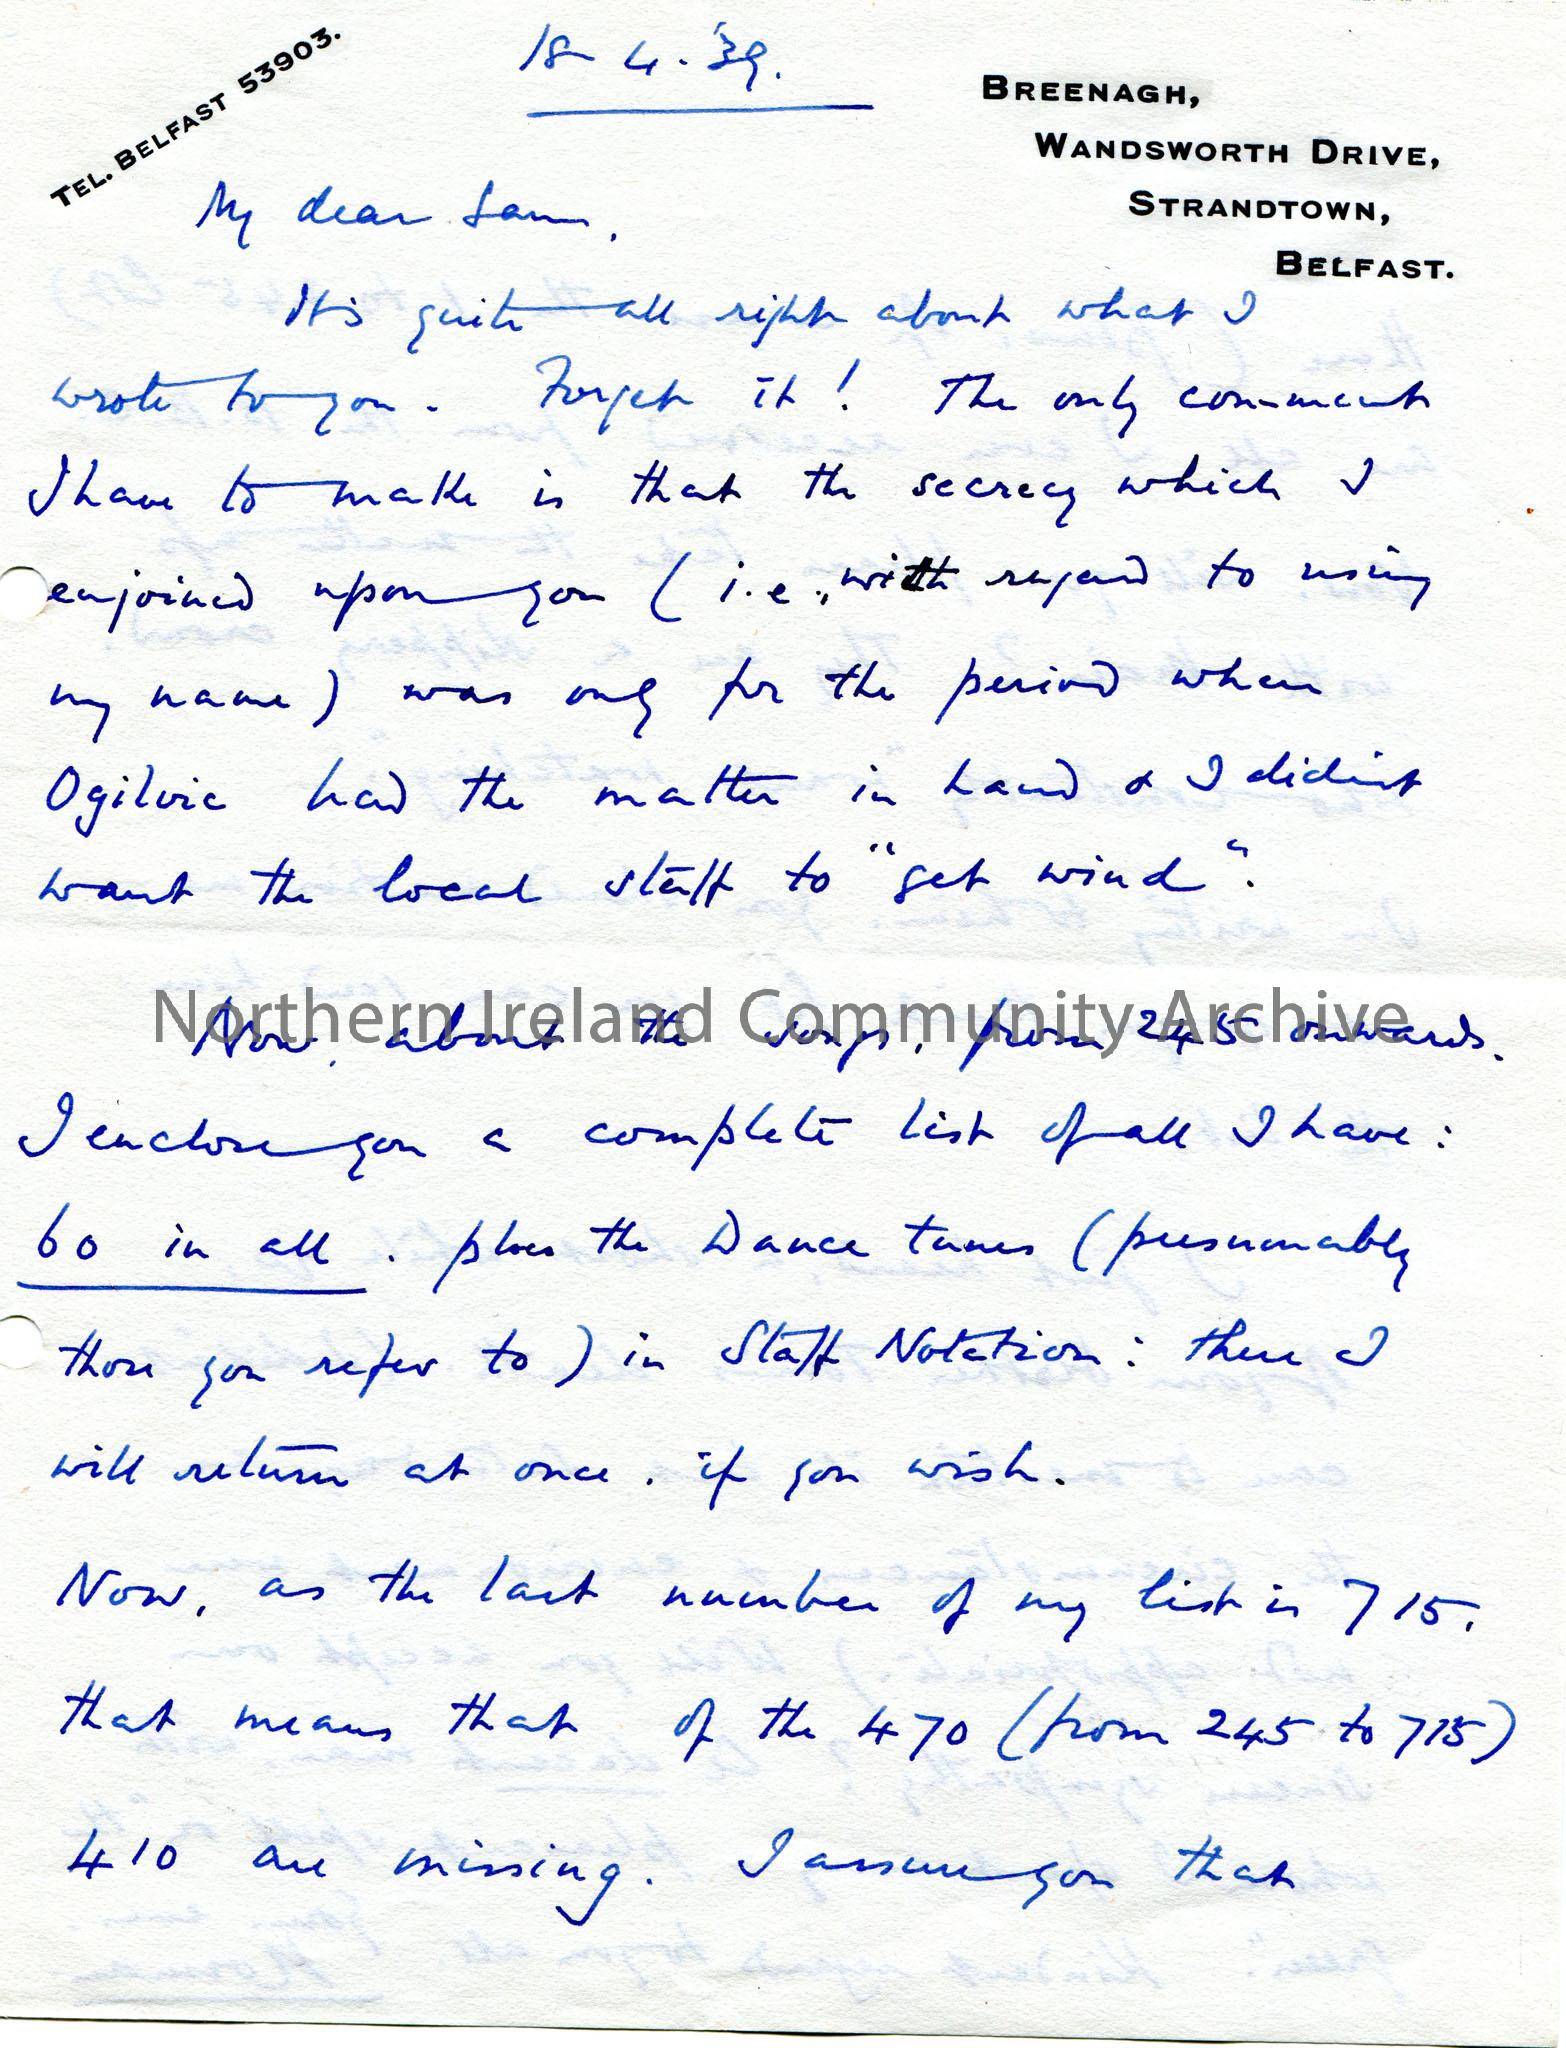 TEL. BELFAST 53903.
18 4. '39.
BREENAGH,
WANDSWORTH DRIVE,
STRANDTOWN,
BELFAST.
My dear Sam,
It's quite all right about what I
wrote to you. Forget it! The only comment
I have to make is that the secrecy which I
enjoined upon you (i.e., with regard to using
my name) was only for the period when
Ogilvie had the matter in hand & I didn't
want the local staff to "get wind".
Northern Ireland Community Archive
Now, about the songs, from 245 onwards.
I enclose you a complete list of all I have:
60 in all. plus the Dance tunes (presumably
those you refer to) in Staff Notation: these I
will return at once, if you wish.
Now, as the last number of my list is 715,
that means that of the 470 (from 245 to 715)
410 are missing. I assure you that